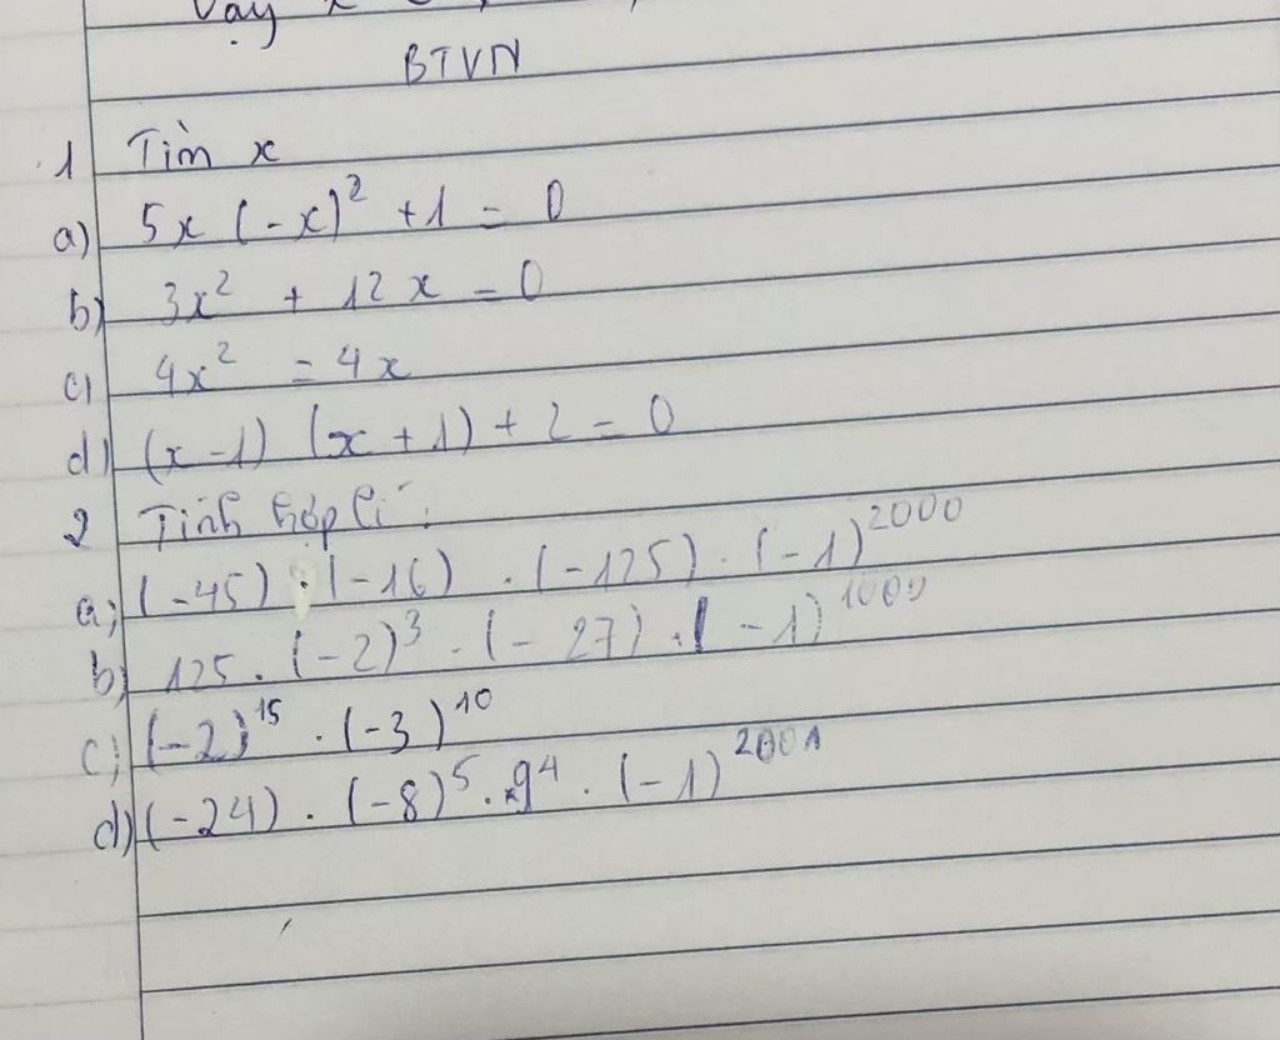 Vậy x
BTVN
1 Tìm x
a) 5x (-x)² + 1 = 0
b) 3x² + 12x = 0
c) 4x² = 4x
d) (x-1) (x+1) + 2 = 0
2 Tính hợp lí:
a; (-45) . (-16) . (-125) . (-1)²⁰⁰⁰
b) 125 . (-2)³ . (-27) . (-1)¹⁰⁰⁰
c; (-2)¹⁵ . (-3)¹⁰
d) (-24) . (-8)⁵ . 9⁴ . (-1)²⁰⁰¹